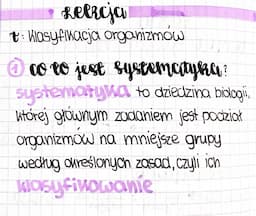 Lekcja
t: Klasyfikacja organizmów
1 co to jest systematyka?
systematyka to dziedzina biologii,
której głównym zadaniem jest podział
organizmów na mniejsze grupy
według określonych zasad, czyli ich
klasyfikowanie